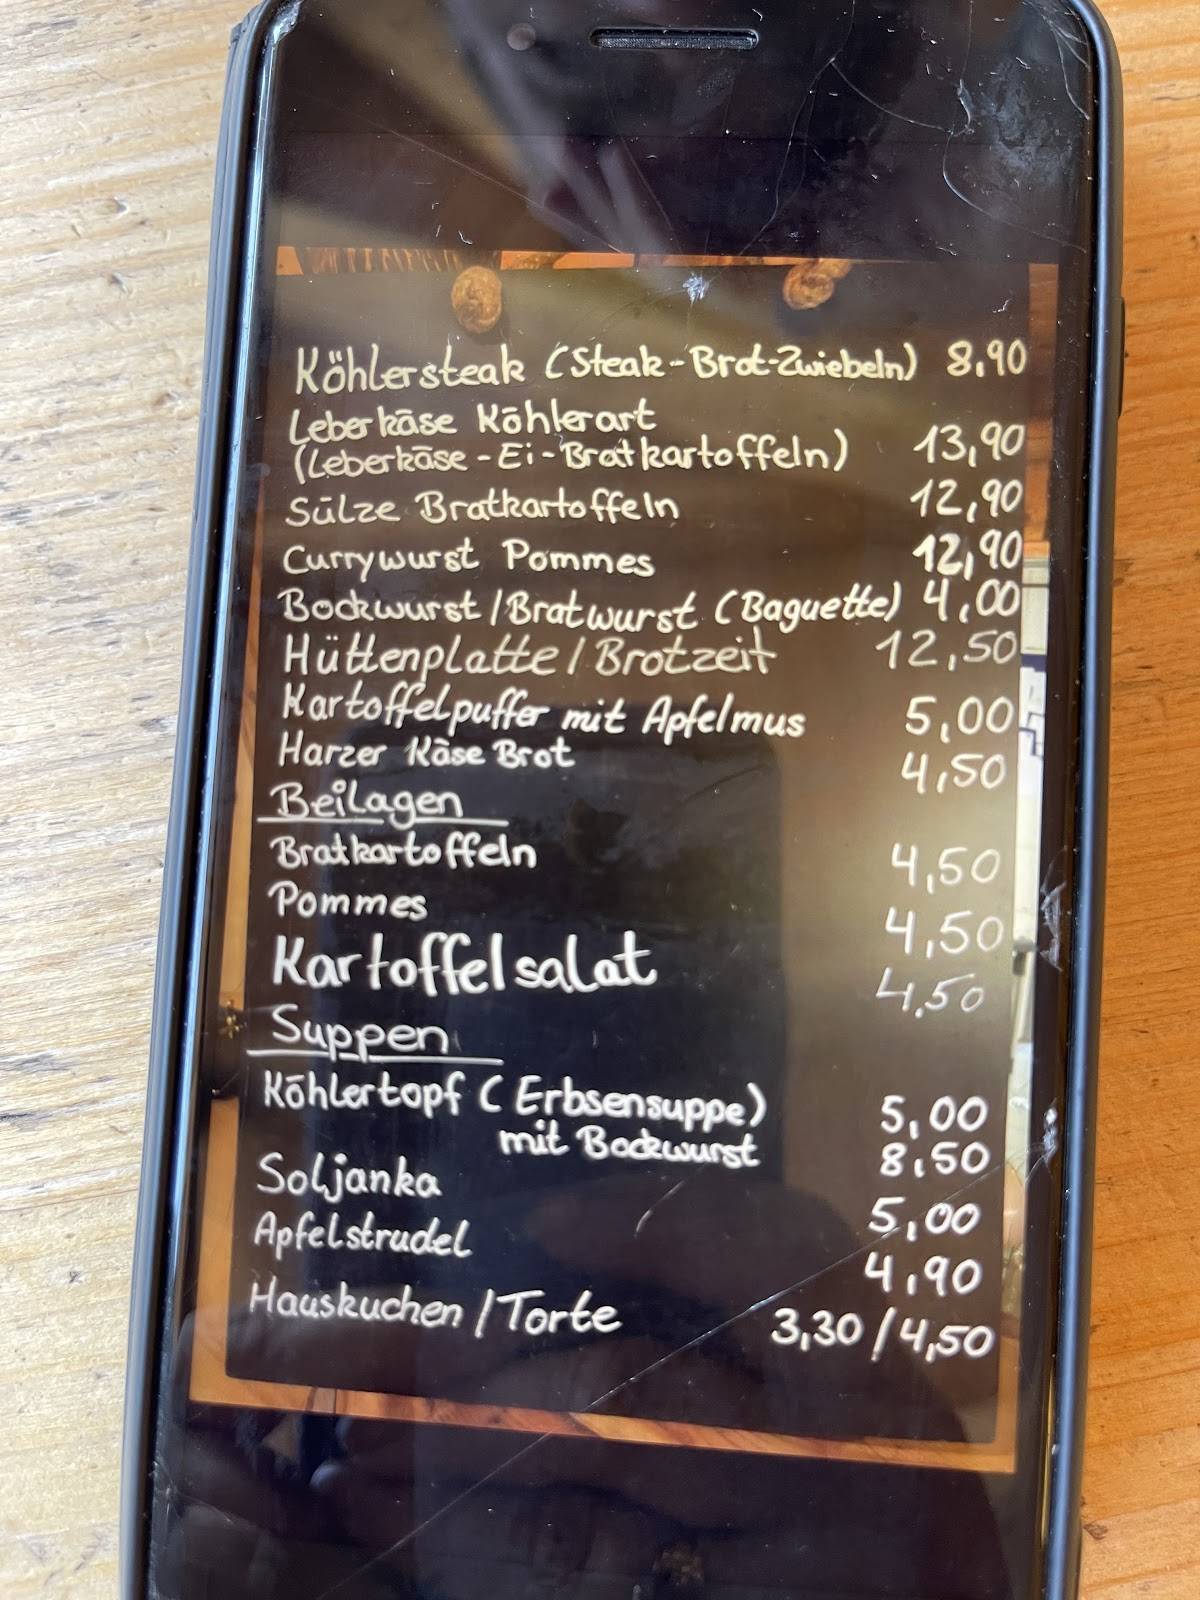 Köhlersteak (Steak-Brot-Zwiebeln) 8,90
Leberkäse Köhlerart
(Leberkäse-Ei-Bratkartoffeln) 13,90
Sülze Bratkartoffeln 12,90
Currywurst Pommes 12,90
Bockwurst/Bratwurst (Baguette) 4,00
Hüttenplatte/Brotzeit 12,50
Kartoffelpuffer mit Apfelmus 5,00
Harzer Käse Brot 4,50
Beilagen
Bratkartoffeln 4,50
Pommes 4,50
Kartoffelsalat 4,50
Suppen
Köhlertopf (Erbsensuppe) 5,00
mit Bockwurst 8,50
Soljanka 5,00
Apfelstrudel 4,90
Hauskuchen/Torte 3,30/4,50